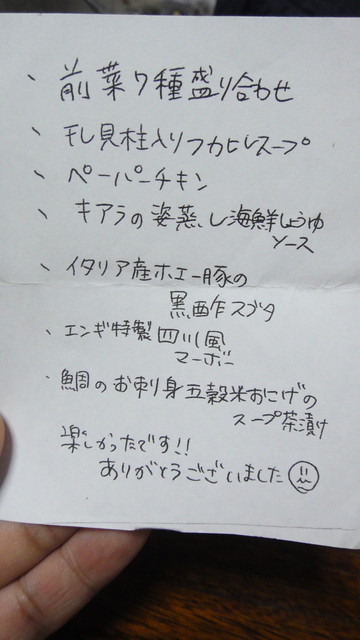 、前菜7種盛り合わせ
、干し貝柱入りフカヒレスープ
、ペーパーチキン
、キアラの姿蒸し海鮮しょうゆ
ソース
、イタリア産ホエー豚の
黒酢スブタ
、エンギ特製四川風
マーボー
、鯛のお刺身五穀米おにぎの
スープ茶漬け
楽しかったです!!
ありがとうございました